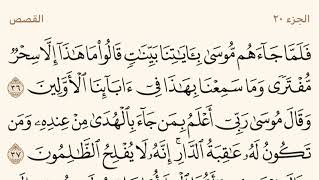 الجزء ٢٠ القصص
فَلَمَّا جَآءَهُم مُّوسَىٰ بِـَٔايَٰتِنَا بَيِّنَٰتٖ قَالُواْ مَا هَٰذَآ إِلَّا سِحۡرٞ
مُّفۡتَرٗى وَمَا سَمِعۡنَا بِهَٰذَا فِيٓ ءَابَآئِنَا ٱلۡأَوَّلِينَ ٣٦
وَقَالَ مُوسَىٰ رَبِّيٓ أَعۡلَمُ بِمَن جَآءَ بِٱلۡهُدَىٰ مِنۡ عِندِهِۦ وَمَن
تَكُونُ لَهُۥ عَٰقِبَةُ ٱلدَّارِۚ إِنَّهُۥ لَا يُفۡلِحُ ٱلظَّٰلِمُونَ ٣٧